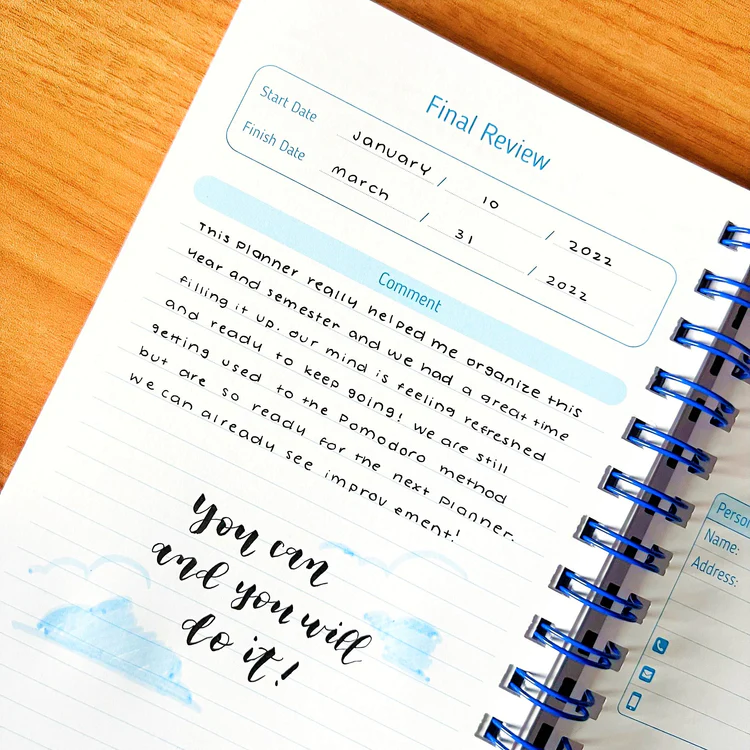 Final Review
Start Date January / 10 / 2022
Finish Date march / 31 / 2022
Comment
This planner really helped me organize this
year and semester and we had a great time
filling it up. our mind is feeling refreshed
and ready to keep going! we are still
getting used to the pomodoro method
but are so ready for the next planner.
we can already see improvement!
you can
and you will
do it!
Name:
Address: